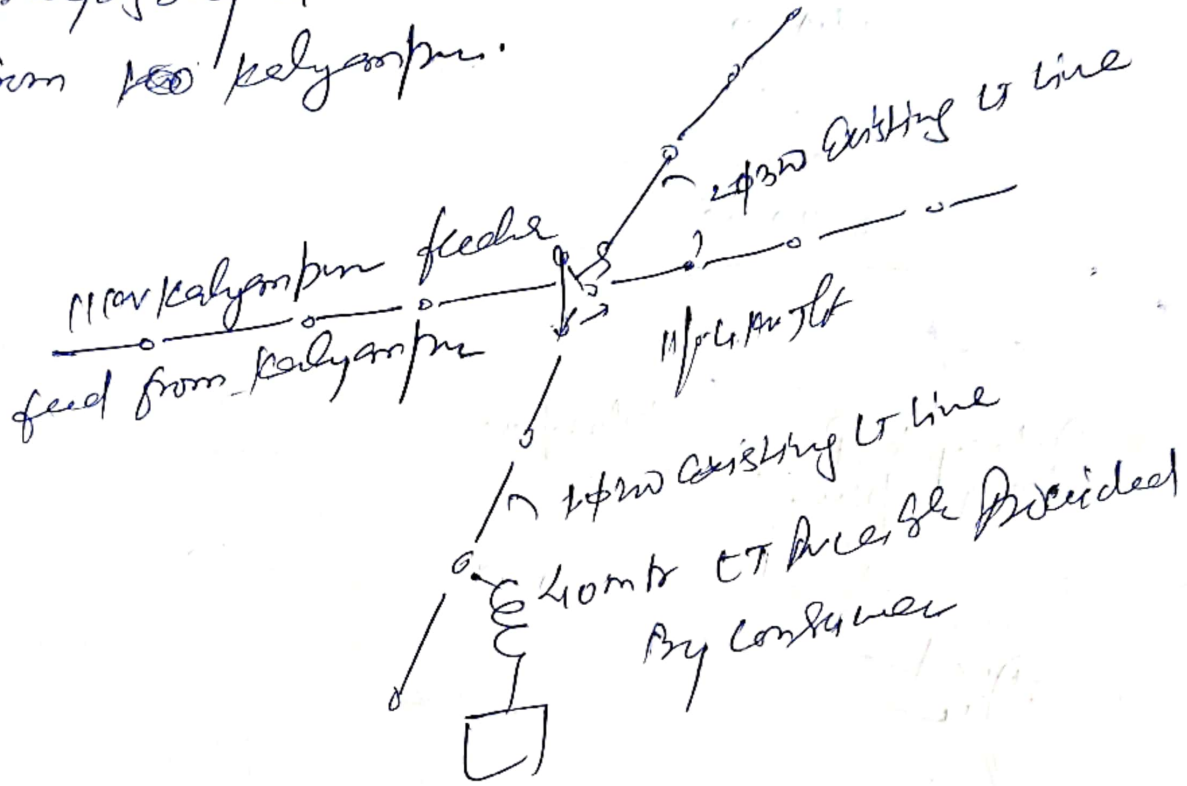 from kalyanpur.
2ϕ3W Existing LT Line
11KV Kalyanpur feeder
feed from Kalyanpur
1ϕ2W Existing LT Line
40mtr LT Provided
By Consumer